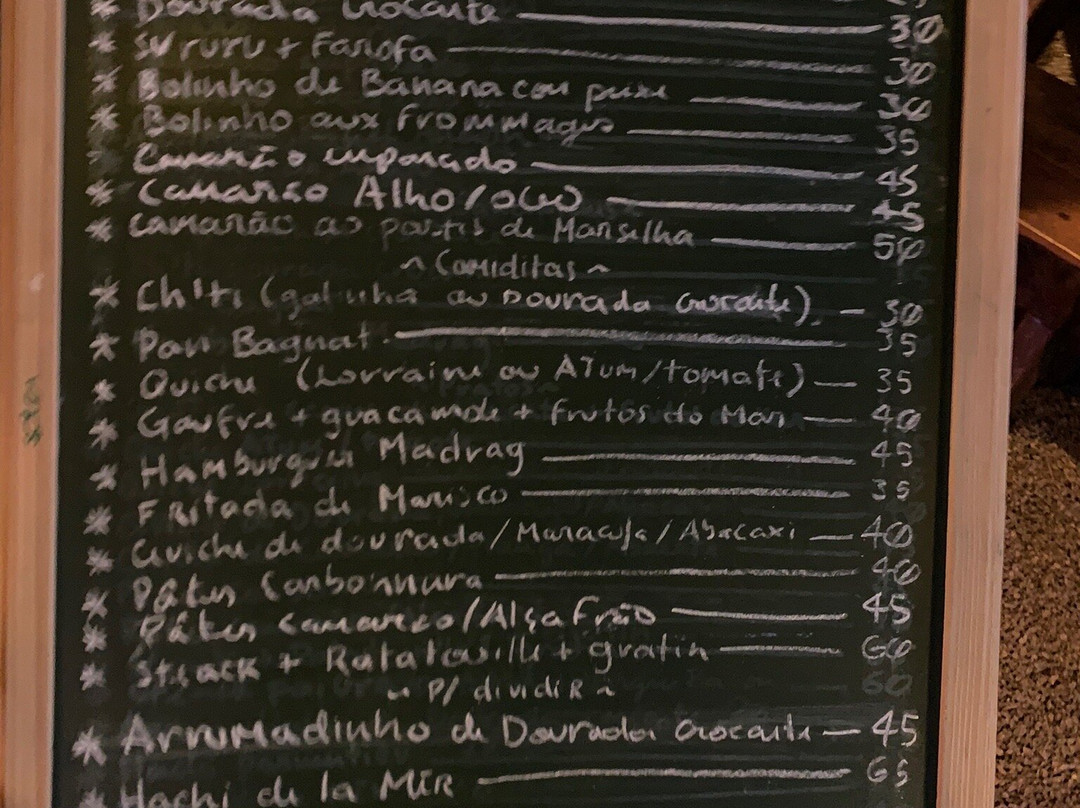 * Dourada Crocante — 30
* Sururu + Farofa — 30
* Bolinho de Banana com peixe — 30
* Bolinho aux Frommages — 35
* Camarão empanado — 45
* Camarão Alho/oleo — 45
* Camarão ao pastis de Marselha — 50
~ Comiditas ~
* Ch'ti (galinha ou Dourada crocante) — 30
* Pan Bagnat — 35
* Quiche (Lorraine ou Atum/tomate) — 35
* Gaufre + guacamole + frutos do Mar — 40
* Hamburguer Madrag — 45
* Fritada de Marisco — 35
* Ceviche de dourada/Maracuja/Abacaxi — 40
* Pâtes Carbonnara — 40
* Pâtes Camarão/Alçafrão — 45
* Steack + Ratatouille + gratin — 60
~ P/ dividir ~
* Arrumadinho de Dourada Crocante — 45
* Hachi de la Mer — 65